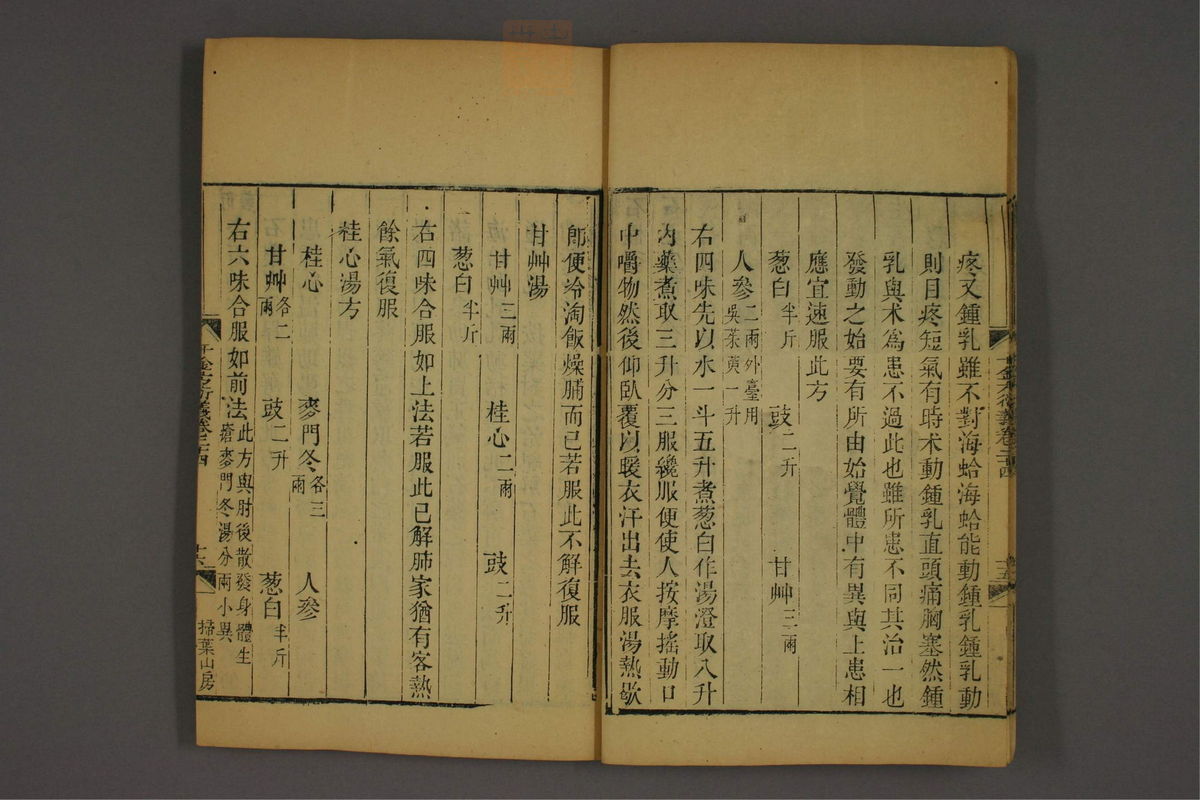 疼又鍾乳雖不對海蛤海蛤能動鍾乳鍾乳動
則目疼短氣有時朮動鍾乳直頭痛胸塞然鍾
乳與朮爲患不過此也雖所患不同其治一也
發動之始要有所由始覺體中有異與上患相
應宜速服此方
葱白半斤 豉二升 甘艸三兩
人參二兩外臺用吳茱萸一升
右四味先以水一斗五升煮葱白作湯澄取八升
內藥煮取三升分三服纔服便使人按摩搖動口
中嚼物然後仰臥覆以暖衣汗出去衣服湯熱歇
卽便冷淘飯燥脯而已若服此不解復服
甘艸湯
甘艸三兩 桂心二兩 豉二升
葱白半斤
右四味合服如上法若服此已解肺家猶有客熱
餘氣復服
桂心湯方
桂心 麥門冬各三兩 人參
甘艸各二兩 豉二升 葱白半斤
右六味合服如前法此方與肘後散發身體生瘡麥門冬湯分兩小異
千金方衍義卷二十四
十六
掃葉山房